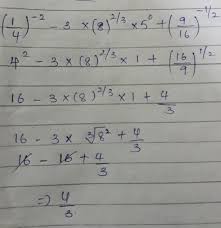 (1/4)^-2 - 3 × (8)^2/3 × 5^0 + (9/16)^-1/2
4^2 - 3 × (8)^2/3 × 1 + (16/9)^1/2
16 - 3 × (8)^2/3 × 1 + 4/3
16 - 3 × ∛8^2 + 4/3
16 - 16 + 4/3
⇒ 4/3